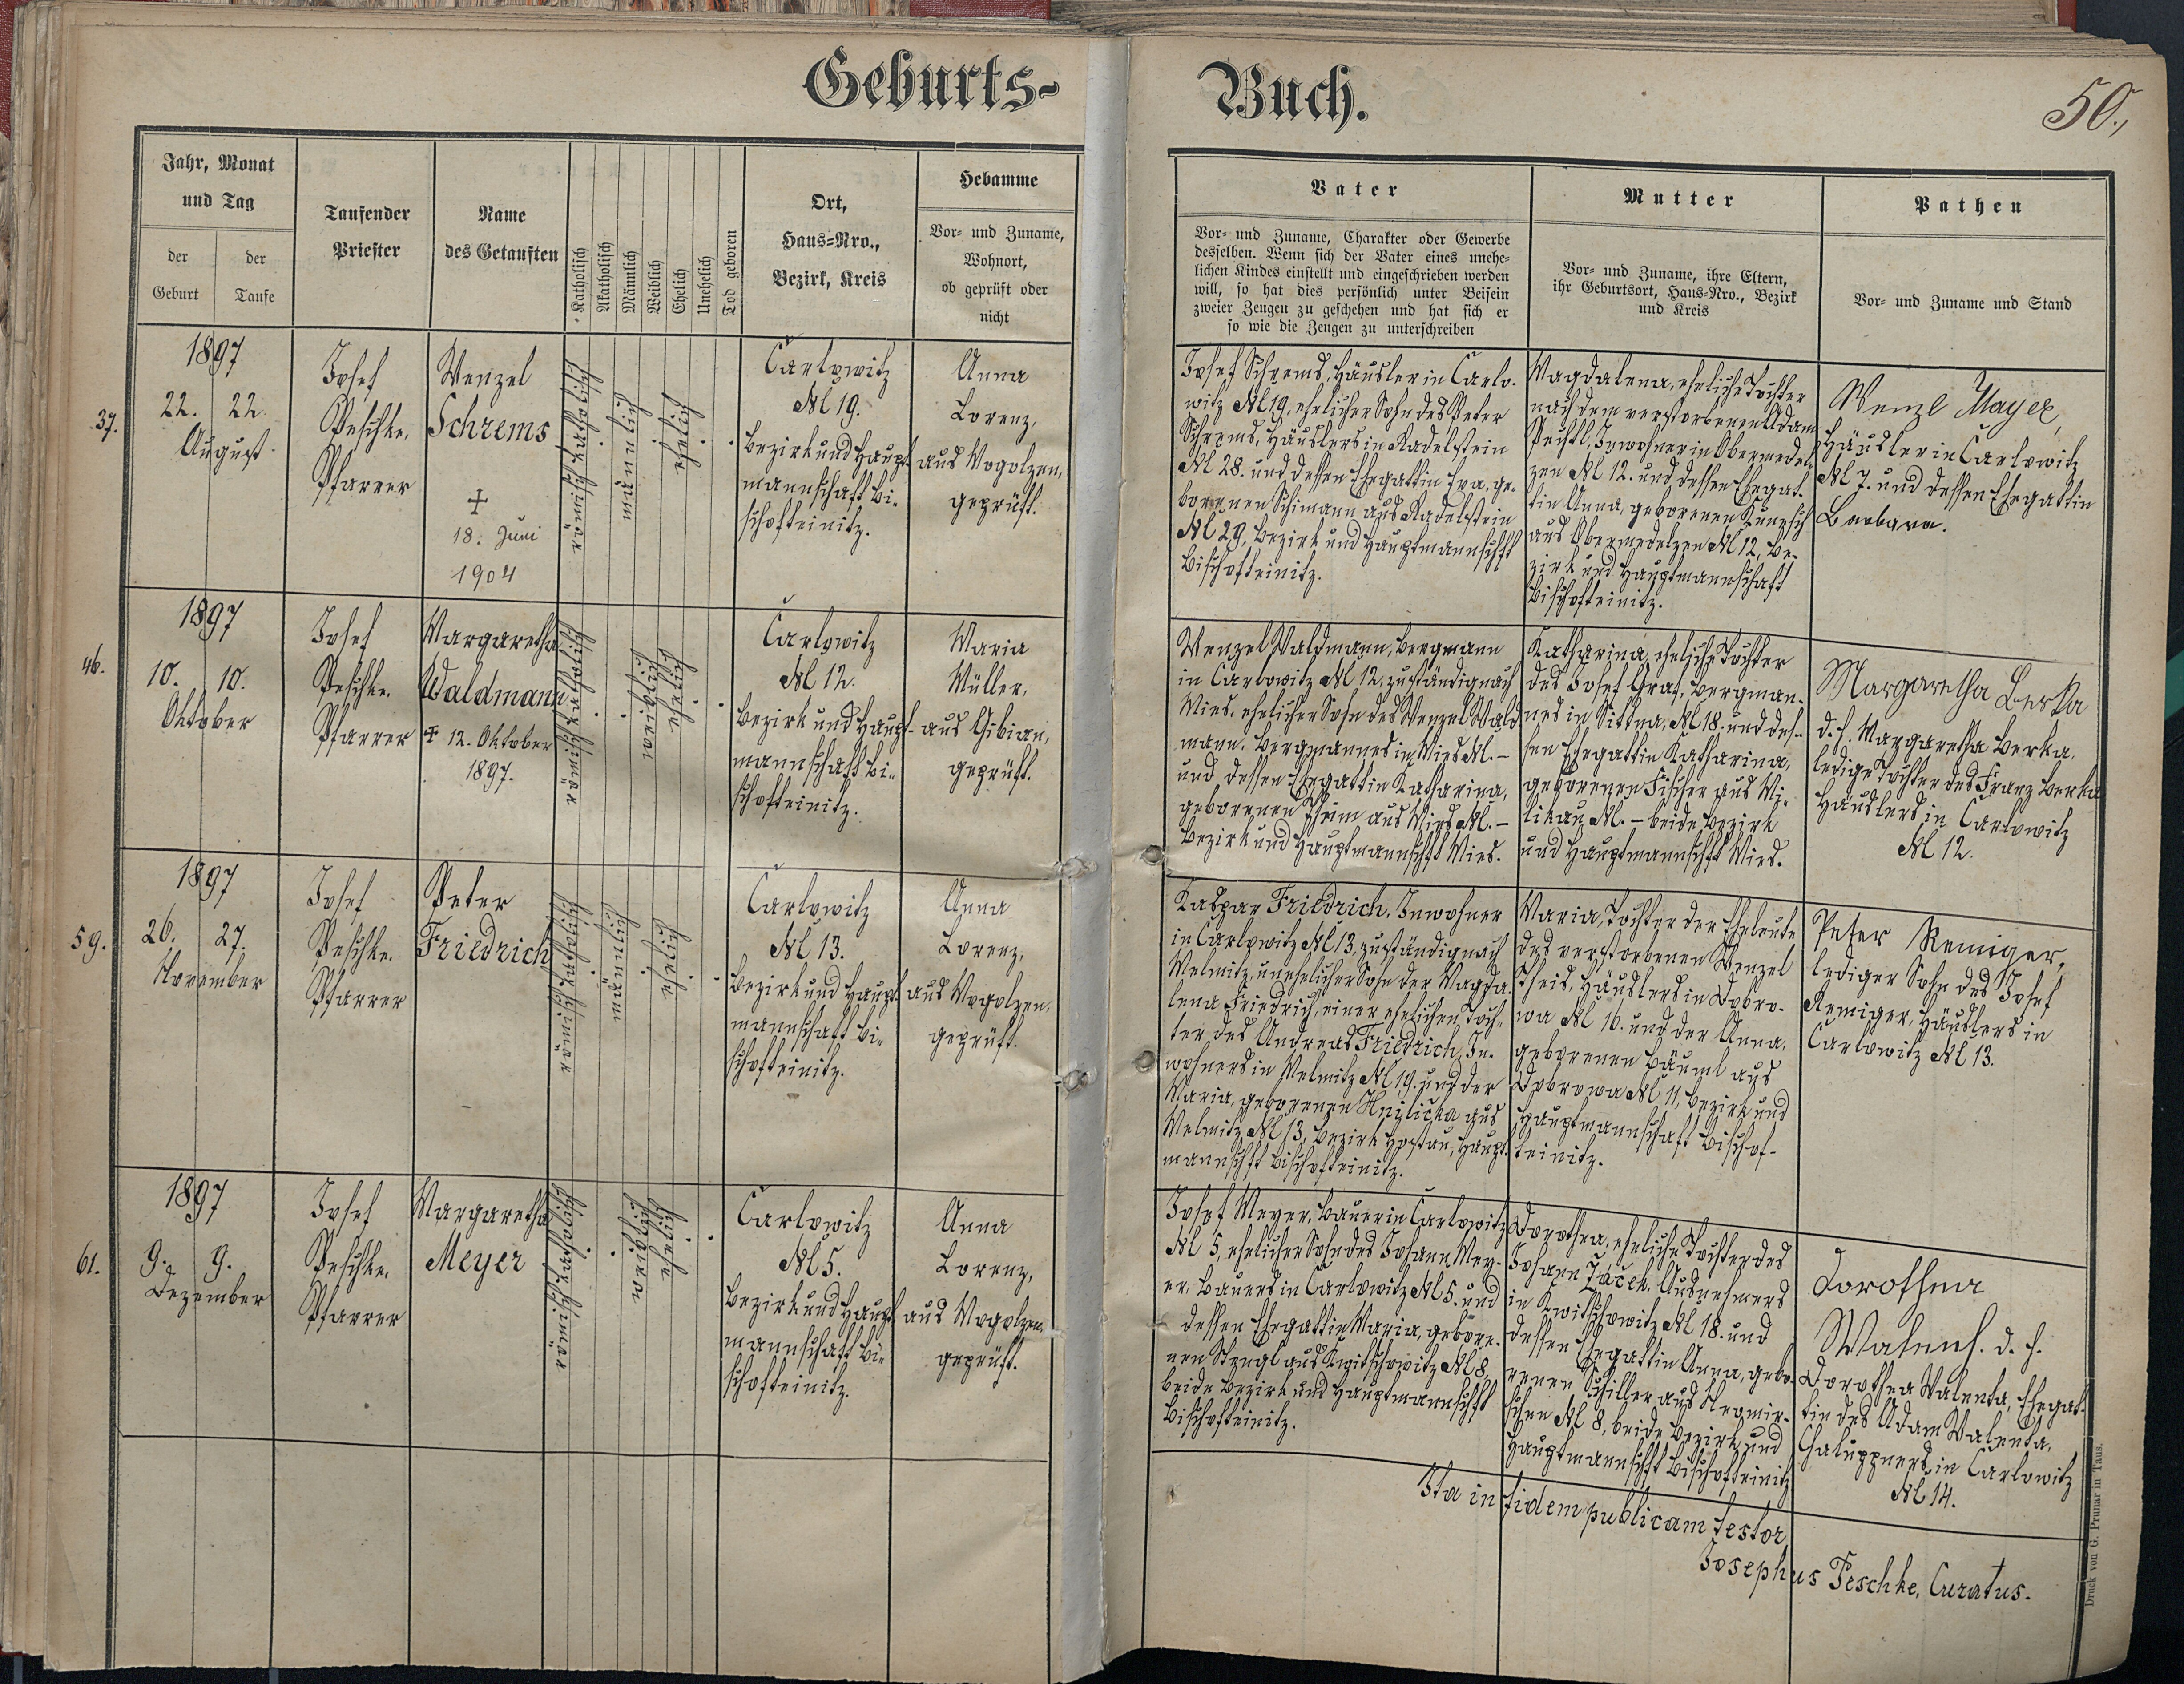 Geburts-
Buch.
50.,
Jahr, Monat
und Tag
der
Geburt
der
Taufe
Taufender
Priester
Name
des Getauften
Katholisch
Akatholisch
Männlich
Weiblich
Ehelich
Unehelich
Tod geboren
Ort,
Haus=Nro.,
Bezirk, Kreis
Hebamme
Vor= und Zuname,
Wohnort,
ob geprüft oder
nicht
Vater
Vor= und Zuname, Charakter oder Gewerbe
desselben. Wenn sich der Vater eines unehe-
lichen Kindes einstellt und eingeschrieben werden
will, so hat dies persönlich unter Beisein
zweier Zeugen zu geschehen und hat sich er
so wie die Zeugen zu unterschreiben
Mutter
Vor= und Zuname, ihre Eltern,
ihr Geburtsort, Haus=Nro., Bezirk
und Kreis
Pathen
Vor= und Zuname und Stand
37.
1897
22. 22.
August
Josef
Peschke,
Pfarrer
Wenzel
Schrems
+
18. Juni
1904
römisch katholisch
männlich
ehelich
Carlowitz
N 19.
Bezirk und Haupt
mannschaft Bi-
schofteinitz.
Anna
Lorenz,
aus Wogolzen,
geprüft.
Josef Schrems, Häusler in Carlo-
witz N 19, ehelicher Sohn des Peter
Schrems, Häuslers in Radelstein
N 28. und dessen Ehegattin Eva, ge-
borenen Schimann aus Radelstein
N 29, Bezirk und Hauptmannschft
Bischofteinitz.
Magdalena, eheliche Tochter
nach dem verstorbenen Adam
Pechtl, Inwohner in Obermedel-
zen N 12. und dessen Ehegat-
tin Anna, geborenen
aus Obermedelzen N 12, Be-
zirk und Hauptmannschaft
Bischofteinitz.
Wenzl Mayer,
Häusler in Carlowitz
N 7. und dessen Ehegattin
Barbara.
46.
1897
10. 10.
Oktober
Josef
Peschke,
Pfarrer
Margaretha
Waldmann
+ 12. Oktober
1897.
römisch katholisch
weiblich
ehelich
Carlowitz
N 12.
Bezirk und Haupt-
mannschaft Bi-
schofteinitz.
Maria
Müller,
aus Gibian,
geprüft.
Wenzel Waldmann, Bergmann
in Carlowitz N 12, zuständig nach
Mies, ehelicher Sohn des Wenzel Wald
mann, Bergmannes in Mies N. -
und dessen Ehegattin Katharina,
geborenen aus Mies N. -
Bezirk und Hauptmannschft Mies.
Katharina, eheliche Tochter
des Josef Graf, Bergman-
nes in Sittna, N 18. und des-
sen Ehegattin Katharina,
geborenen Fischer aus Mi-
likau N. - beide Bezirk
und Hauptmannschft Mies.
Margaretha Berka
d. h. Margaretha Berka,
ledige Tochter des Franz Berka
Häuslers in Carlowitz
N 12.
59.
1897
26. 27.
November
Josef
Peschke,
Pfarrer
Peter
Friedrich
römisch katholisch
männlich
ehelich
Carlowitz
N 13.
Bezirk und Haupt
mannschaft Bi-
schofteinitz.
Anna
Lorenz,
aus Wogolzen,
geprüft.
Kaspar Friedrich, Inwohner
in Carlowitz N 13, zuständig nach
Melmitz, unehelicher Sohn der Magda-
lena Friedrich, einer ehelichen Toch-
ter des Andreas Friedrich, In-
wohners in Melmitz N 19. und der
Maria, geborenen Hnilicka aus
Melmitz N 13, Bezirk Hostau, Haupt-
mannschft Bischofteinitz.
Maria, Tochter der Eheleute
des verstorbenen Wenzel
Theis, Häuslers in Dobro-
wa N 16. und der Anna,
geborenen Bäuml aus
Dobrowa N 11, Bezirk und
Hauptmannschaft Bischof-
teinitz.
Peter Remiger,
lediger Sohn des Josef
Remiger, Häuslers in
Carlowitz N 13.
61.
1897
9. 9.
Dezember
Josef
Peschke,
Pfarrer
Margaretha
Meyer
römisch katholisch
weiblich
ehelich
Carlowitz
N 5.
Bezirk und Haupt
mannschaft Bi-
schofteinitz.
Anna
Lorenz,
aus Wogolzen,
geprüft.
Josef Meyer, Bauer in Carlowitz
N 5, ehelicher Sohn des Johann Mey-
er, Bauers in Carlowitz N 5. und
dessen Ehegattin Maria, gebore-
nen Stengl aus Kwitschowitz N 8,
beide Bezirk und Hauptmannschft
Bischofteinitz.
Dorothea, eheliche Tochter des
Johann Jacek, Ausnehmers
in Kwitschowitz N 18. und
dessen Ehegattin Anna, gebo-
renen Schiller aus
schen N 8, beide Bezirk und
Hauptmannschft Bischofteinitz
Dorothea
d. h.
Dorothea Valenta, Ehegat-
tin des Adam Valenta,
Chaluppners in Carlowitz
N 14.
Ita in fidem publicam testor
Josephus Peschke, Curatus.
Druck von G. Prunar in Taus.